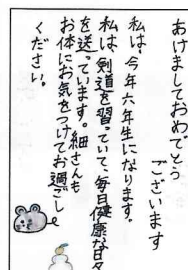 あけましておめでとう
ございます
私は、今年六年生になります。
私は、剣道を習っていて、毎日健康な日々
を送っています。細さんも
お体にお気をつけてお過ごし
ください。